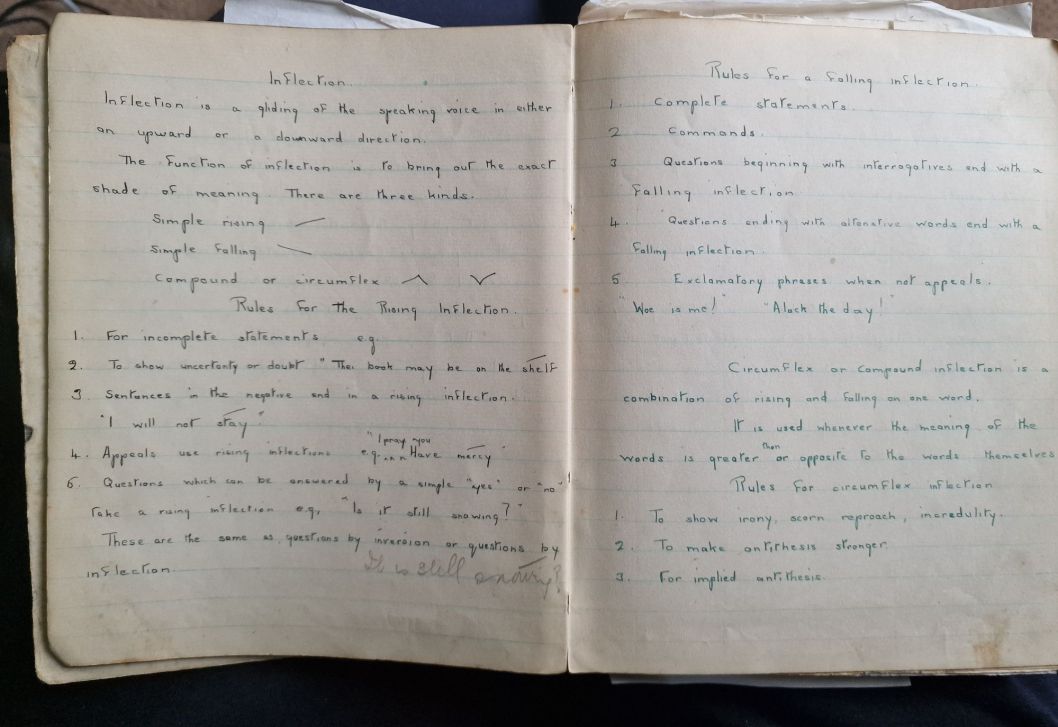 Inflection.
Inflection is a gliding of the speaking voice in either
an upward or a downward direction.
The function of inflection is to bring out the exact
shade of meaning. There are three kinds.
Simple rising
Simple falling
Compound or circumflex
Rules for the Rising Inflection.
1. For incomplete statements e.g.
2. To show uncertanty or doubt "The book may be on the shelf
3. Sentences in the negative end in a rising inflection.
"I will not stay."
"I pray you
4. Appeals use rising inflections e.g. Have mercy
6. Questions which can be answered by a simple "yes" or "no"
take a rising inflection e.g. "Is it still snowing?"
These are the same as questions by inversion or questions by
inflection.
It is still snowing?
Rules for a falling inflection.
1. Complete statements.
2 Commands.
3 Questions beginning with interrogatives end with a
falling inflection.
4. Questions ending with alternative words end with a
falling inflection.
5 Exclamatory phrases when not appeals.
"Woe is me!" "Alack the day!"
Circumflex or compound inflection is a
combination of rising and falling on one word.
It is used whenever the meaning of the
than
words is greater or opposite to the words themselves
Rules for circumflex inflection
1. To show irony, scorn reproach, incredulity.
2. To make antithesis stronger
3. For implied antithesis.